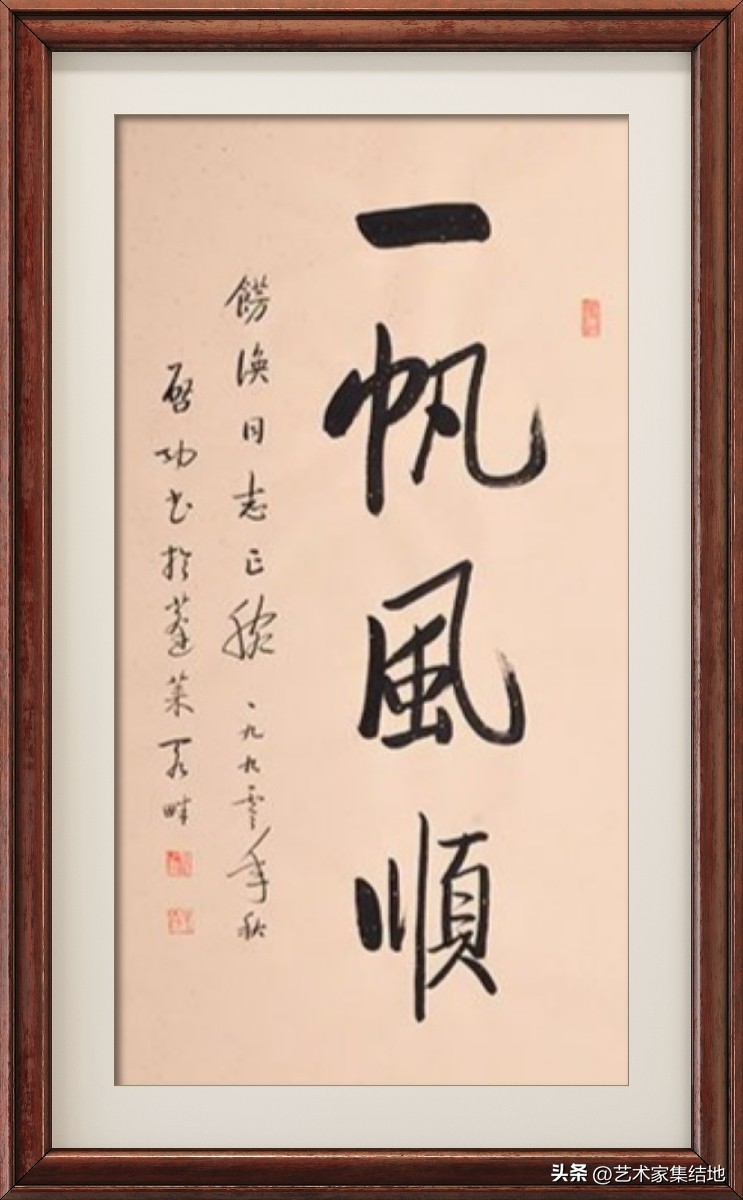 一帆風順
渙同志正腕 一九九零年秋
啓功书於蓬莱阁畔
头条 @艺术家集结地